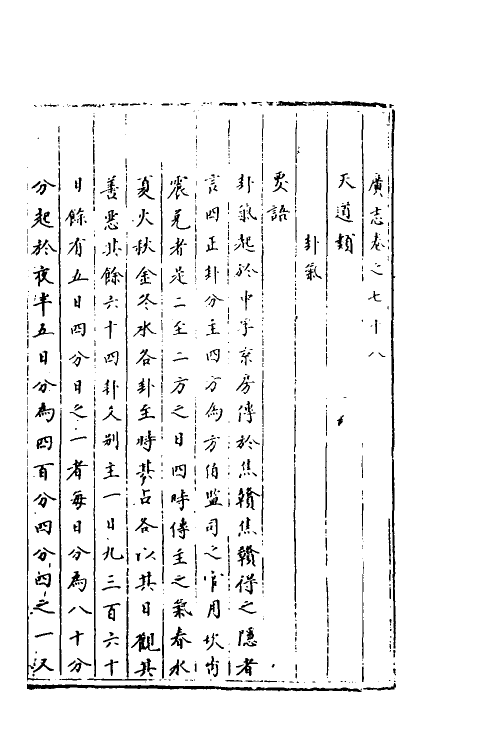 廣志卷之七十八
天道類
卦氣
要語
卦氣起於中孚京房傳於焦贛焦贛得之隱者
言四正卦分主四方為方伯監司之官用坎离
震兌者是二至二方之日四時傳主之氣春水
夏火秋金冬水各卦主時其占各以其日觀其
善惡其餘六十四卦爻別主一日凡三百六十
日餘有五日四分日之一者每日分為八十分
分起於夜半五日分為四百分四分日之一又